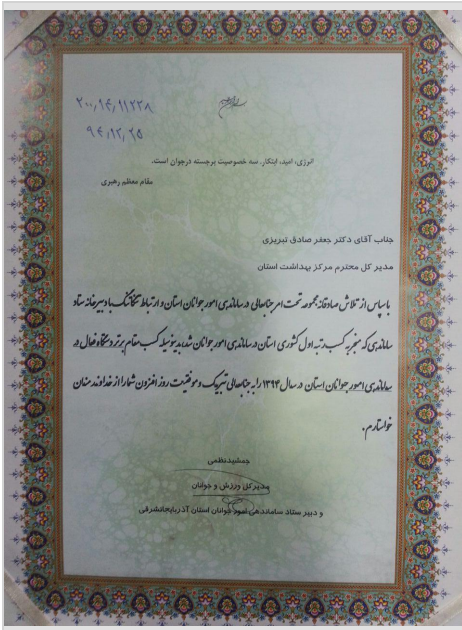 ۲۰۰/۱۴/۱۱۲۳۸
۹۴/۱۲/۲۵
انرژی، امید، ابتکار. سه خصوصیت برجسته درجوان است.
مقام معظم رهبری
جناب آقای دکتر جعفر صادق تبریزی
مدیر کل محترم مرکز بهداشت استان
با سپاس از تلاش صادقانه مجموعه تحت امر جنابعالی در ساماندهی امور جوانان استان و ارتباط تنگاتنگ با دبیرخانه ستاد
ساماندهی که منجر به کسب رتبه اول کشوری استان در ساماندهی امور جوانان شد، بدینوسیله کسب مقام برتر دستگاه فعال در
ساماندهی امور جوانان استان در سال ۱۳۹۴ را به جنابعالی تبریک و موفقیت روز افزون شما را از خداوند منان
خواستارم.
جمشید نظمی
مدیر کل ورزش و جوانان
و دبیر ستاد ساماندهی امور جوانان استان آذربایجانشرقی